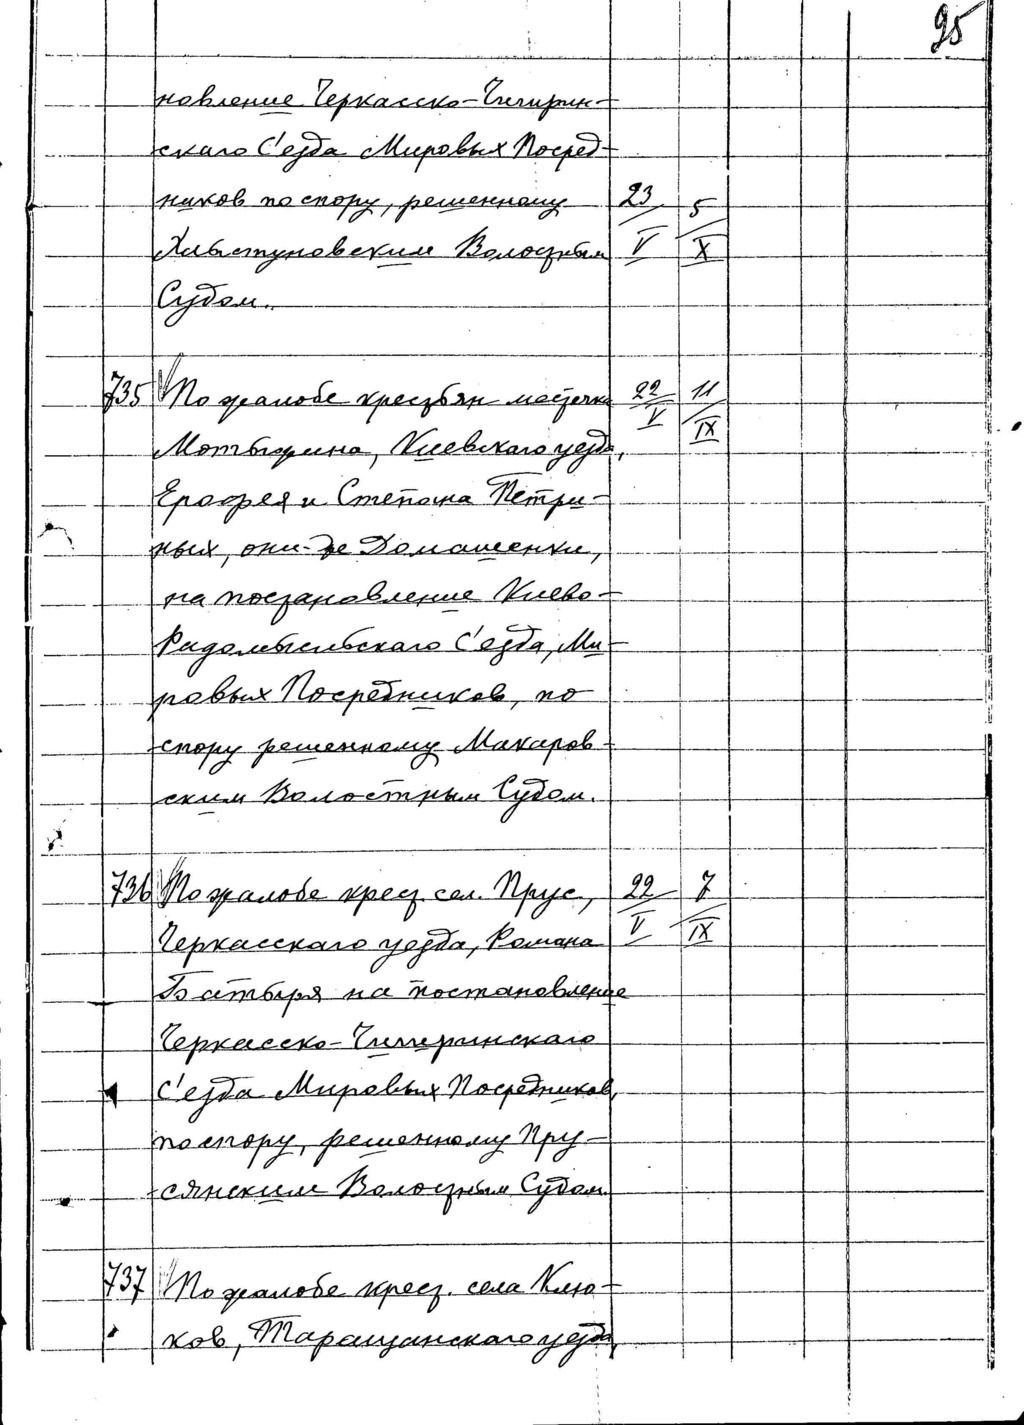 95
новление Черкасско-Чигирин-
скаго С'езда Мировых Посред-
ников по спору, решенному 23/V 5/X
Хлыстуновским Волостным
Судом.
735 По жалобе крестьян местечка 22/V 11/IX
Мотыжина, Киевскаго уезда,
Ерофея и Степана Петри-
ных, они-же Домашенки,
на постановление Киево-
Радомысльскаго С'езда, Ми-
ровых Посредников, по
спору решенному Макаров-
ским Волостным Судом.
736 По жалобе крест. сел. Прус, 22/V 7/IX
Черкасскаго уезда, Романа
Батыря на постановление
Черкасско-Чигиринскаго
С'езда Мировых Посредников,
по спору, решенному Пру-
сянским Волостным Судом.
737 По жалобе крест. села Клю-
ков, Таращанскаго уезда,